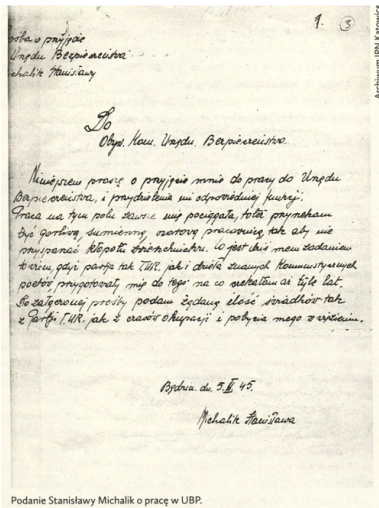 9. 3
Archiwum IPN Katowice
o przyjęcie
Urzędu Bezpieczeństwa
Michalik Stanisławy
Do
Obyw. Kom. Urzędu Bezpieczeństwa.
Niniejszem proszę o przyjęcie mnie do pracy do Urzędu
Bezpieczeństwa, i przydzielenie mi odpowiedniej funkcji.
Praca na tym polu zawsze mię pociągała, toteż przyrzekam
być gorliwą, sumienną, wzorową pracownicą, tak aby nie
przyspażać kłopotu zwierzchnictwu. Co jest dziś mem zadaniem
to wiem, gdyż partja tak T.U.R. jak i dzieła znanych Komunistycznych
poetów, przygotowały mię do tego na co czekałam aż tyle lat.
Do załączonej prośby podam żądaną ilość świadków tak
z Partji T.U.R. jak z czasów okupacji i pobycia mego w więzieniu.
Będzin. dn. 5. 45.
Michalik Stanisława
Podanie Stanisławy Michalik o pracę w UBP.